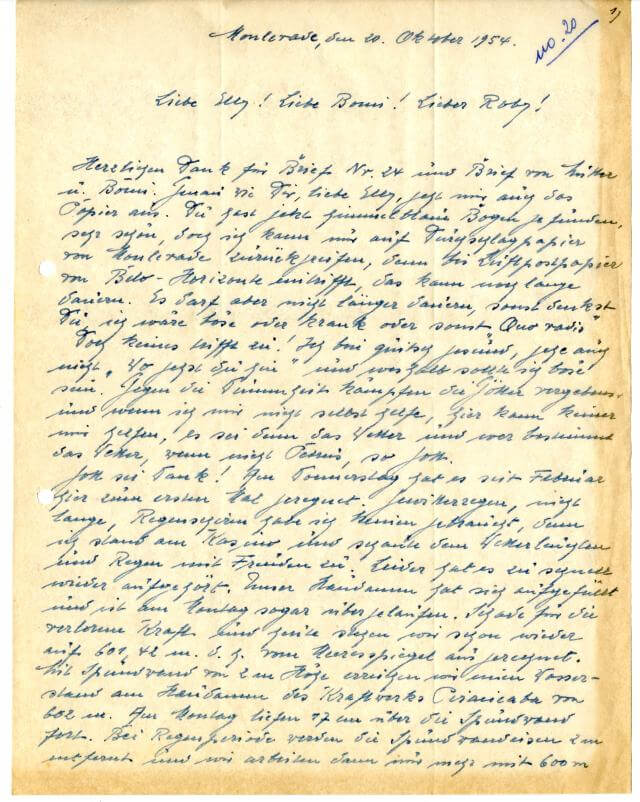 19
no. 20
Monlevade, den 20. Oktober 1954.
Liebe Elly! Liebe Bomi! Lieber Roby!
Herzlichen Dank für Brief Nr. 24 und Brief von Mutter
u. Bomi. Genau wie Dir, liebe Elly, geht mir auch das
Papier aus. Du hast jetzt himmelblaue Bogen gefunden,
sehr schön, doch ich kann nur auf Durchschlagpapier
von Monlevade zurückgreifen, denn bis Luftpostpapier
von Belo-Horizonte eintrifft, das kann noch lange
dauern. Es darf aber nicht länger dauern, sonst denkst
Du, ich wäre böse oder krank oder sonst "Quo vadis"
Doch keines trifft zu! Ich bin gesund,
nicht "Wo gehst du hin" und weshalb sollte ich böse
sein. Gegen die Dummheit kämpfen die Götter vergebens
und wenn ich mir nicht selbst helfe, hier kann keiner
mir helfen, es sei denn das Wetter und wer bestimmt
das Wetter, wenn nicht Petrus, so Gott.
Gott sei Dank! Am Donnerstag hat es seit Februar
hier zum ersten Mal geregnet. Gewitterregen, nicht
lange, Regenschirm habe ich keinen gebraucht, denn
ich stand am Kasino und schaute dem Wetterleuchten
und Regen mit Freuden zu. Leider hat es zu schnell
wieder aufgehört. Unser Staudamm hat sich aufgefüllt
und ist am Montag sogar übergelaufen. Schade für die
verlorene Kraft und heute stehen wir schon wieder
auf 601,42 m. d. h. vom Meeresspiegel aus gerechnet.
Mit Spundwand von 2 m Höhe erreichen wir einen Wasser-
stand am Staudamm des Kraftwerks Piracicaba von
602 m. Am Montag liefen 17 cm über die Spundwand
fort. Bei Regenperiode werden die Spundwandeisen 2 m
entfernt und wir arbeiten dann nur mehr mit 600 m